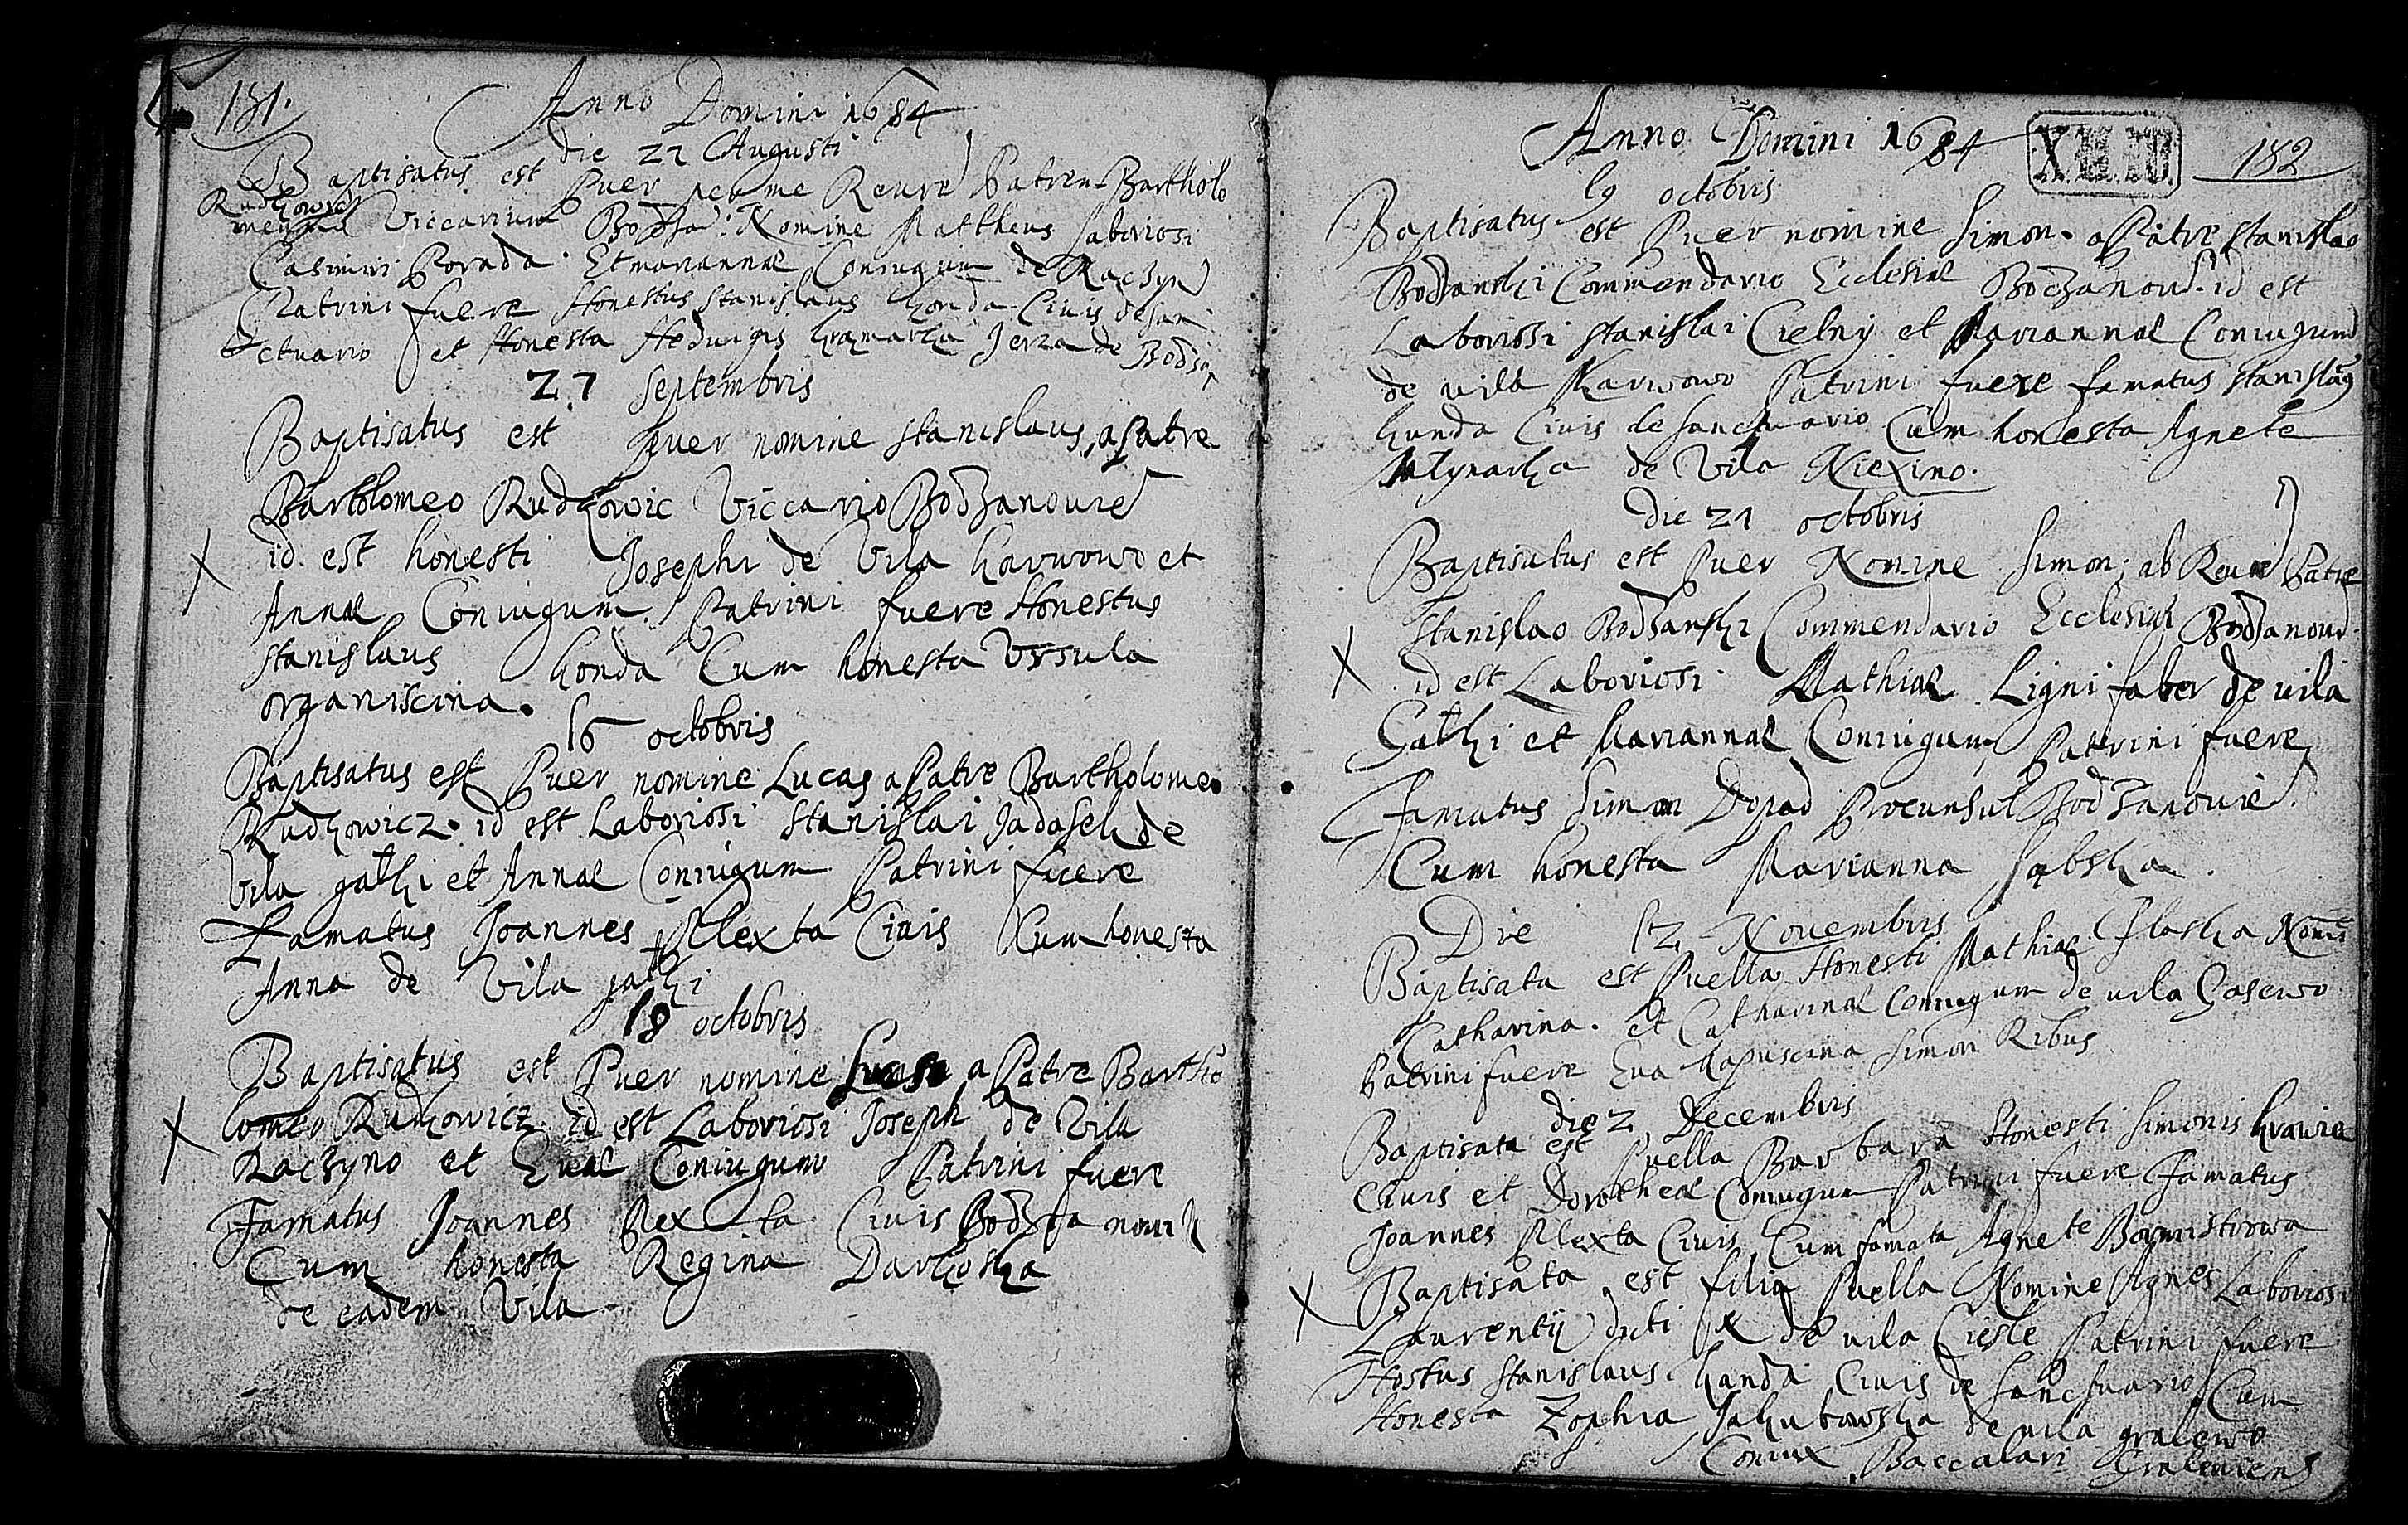 131.
Anno Domini 1684
die 21 Augusti
Baptisatus est Puer per me Reure Patrem Bartholo
meum Rudkowic Viccarium Nomine Mattheus Laboriosi
Casimiri Porada. Et mariannae Coniugum de Raczyn
Patrini fuere Honestus Stanislaus honda Ciuis de san
ctuario et Honesta Heduigis
27 Septembris
Baptisatus est Puer nomine Stanislaus, a Patre
Bartholomeo Rudkowic Viccario Bodzanouie
id est honesti Josephi de Vila karwowo et
Annae Coniugum. Patrini fuere Honestus
Stanislaus honda Cum honesta Vrsula
organiscina.
16 octobris
Baptisatus est Puer nomine Lucas a Patre Bartholomeo
Rudkowicz. id est Laboriosi Stanislai Jadasek de
Vila gatki et Annae Coniugum Patrini fuere
Famatus Joannes Plexta Ciuis Cum honesta
Anna de Vila gatki
18 octobris
Baptisatus est Puer nomine a Patre Bartho
lomeo Rudkowicz id est Laboriosi Joseph de Vila
Raczyno et Euae Coniugum Patrini fuere
Famatus Joannes Plexta Ciuis
Cum honesta Regina
de eadem Vila
Anno Domini 1684
182
19 octobris
Baptisatus est Puer nomine Simon. a Patre Stanislao
Bodzanski Commendario Ecclesiae Bodzanoui. id est
Laboriosi Stanislai Cielny et Mariannae Coniugum
de vila Karwowo Patrini fuere famatus Stanislaus
hunda Ciuis de Sanctuario Cum honesta Agnete
Mlynarka de Vila Niexino.
die 21 octobris
Baptisatus est Puer Nomine Simon. ab Reure Patre
Stanislao Bodzanski Commendario Ecclesiae Bodzanoui
id est Laboriosi Mathiae Ligni faber de vila
Gatki et Mariannae Coniugum Patrini fuere
Famatus Simon Dopad Procunsul Bodzanouie
Cum honesta Marianna
Die 12 Nouembris
Baptisata est Puella Honesti Mathiae Nomi
Catharina. et Catharinae Coniugum de vila Gasewo
Patrini fuere Eua Kapuscina Simon Ribus
die 2 Decembris
Baptisata est Puella Barbara Honesti Simonis krawiec
Ciuis et Dorotheae Coniugum Patrini fuere Famatus
Joannes Plexta Ciuis Cum famata Agnete Bormistrowa
Baptisata est filia Puella Nomine Agnes Laboriosi
Laurentij dicti de vila Ciesle Patrini fuere
Hostus Stanislaus handa Ciuis de Sanctuario Cum
Honesta Zophia Jakubowska de vila gralewo
Coniux Baccalari